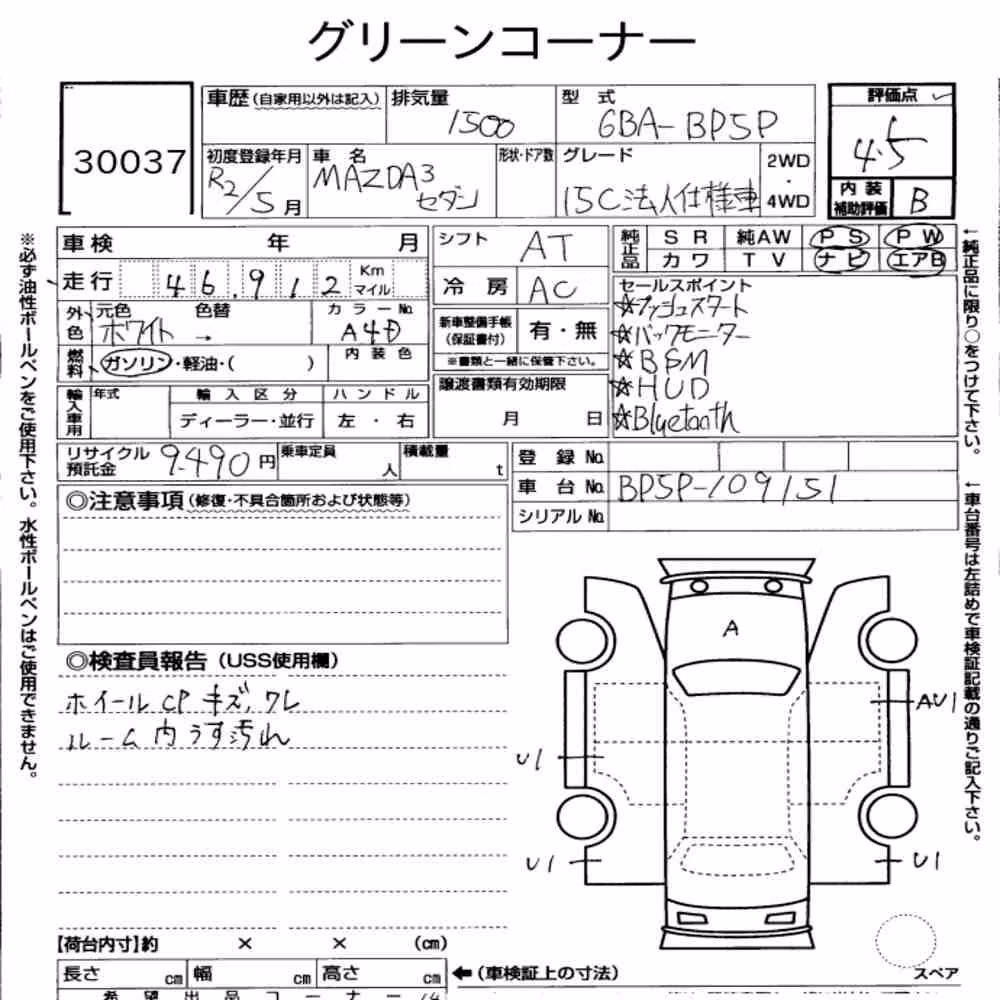 グリーンコーナー
30037
車歴(自家用以外は記入) 排気量 1500 型式 6BA-BP5P 評価点 4.5
初度登録年月 R2/5月 車名 MAZDA3 セダン 形状・ドア数 グレード 15C法人仕様車 2WD・4WD 内装補助評価 B
車検 年 月 シフト AT 純正品 SR 純AW PS PW
カワ TV ナビ エアB
走行 46,912 Km マイル 冷房 AC セールスポイント
外色 元色 ホワイト 色替 → カラーNo. A4D
☆プッシュスタート
新車整備手帳(保証書付) 有・無 ☆バックモニター
※書類と一緒に保管下さい。 ☆BSM
燃料 ガソリン・軽油・( ) 内装色 ☆HUD
輸入車用 年式 輸入区分 ハンドル 譲渡書類有効期限 ☆Bluetooth
ディーラー・並行 左・右 月 日
リサイクル預託金 9,490円 乗車定員 人 積載量 t 登録No.
車台No. BP5P-109151
シリアルNo.
◎注意事項(修復・不具合箇所および状態等)
◎検査員報告(USS使用欄)
ホイールCPキズ,ワレ
ルーム内うす汚れ
A
AU1
U1
U1
U1
【荷台内寸】約 × × (cm)
長さ cm 幅 cm 高さ cm ←(車検証上の寸法) スペア
希望出品コーナー
※必ず油性ボールペンをご使用下さい。水性ボールペンはご使用できません。
←純正品に限り○をつけて下さい。
←車台番号は左詰めで車検証記載の通りご記入下さい。